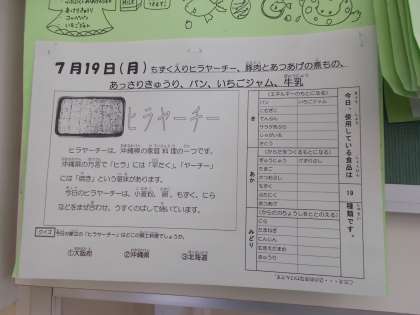 MILK
7月19日(月) もずく入りヒラヤーチー、豚肉とあつあげの煮もの、
あっさりきゅうり、パン、いちごジャム、牛乳
ヒラヤーチー
ヒラヤーチーは、沖縄県の家庭料理の一つです。
沖縄県の方言で「ヒラ」には「平たく」、「ヤーチー」
には「焼き」という意味があります。
今日のヒラヤーチーは、小麦粉、卵、もずく、にら
などをまぜ合わせ、うすくのばして焼いています。
クイズ 今日の献立の「ヒラヤーチー」はどこの郷土料理でしょうか。
①大阪府 ②沖縄県 ③北海道
今日、使用している食品は 19 種類です。
き
(エネルギーのもとになる)
パン いちごジャム
こむぎこ
でんぷん
じゃがいも
さとう
あか
(からだをつくるもとになる)
ぎゅうにゅう
たまご
ぶたにく
もずく
あつあげ
みどり
(からだのちょうしをととのえる)
にら
たまねぎ
にんじん
きゅうり